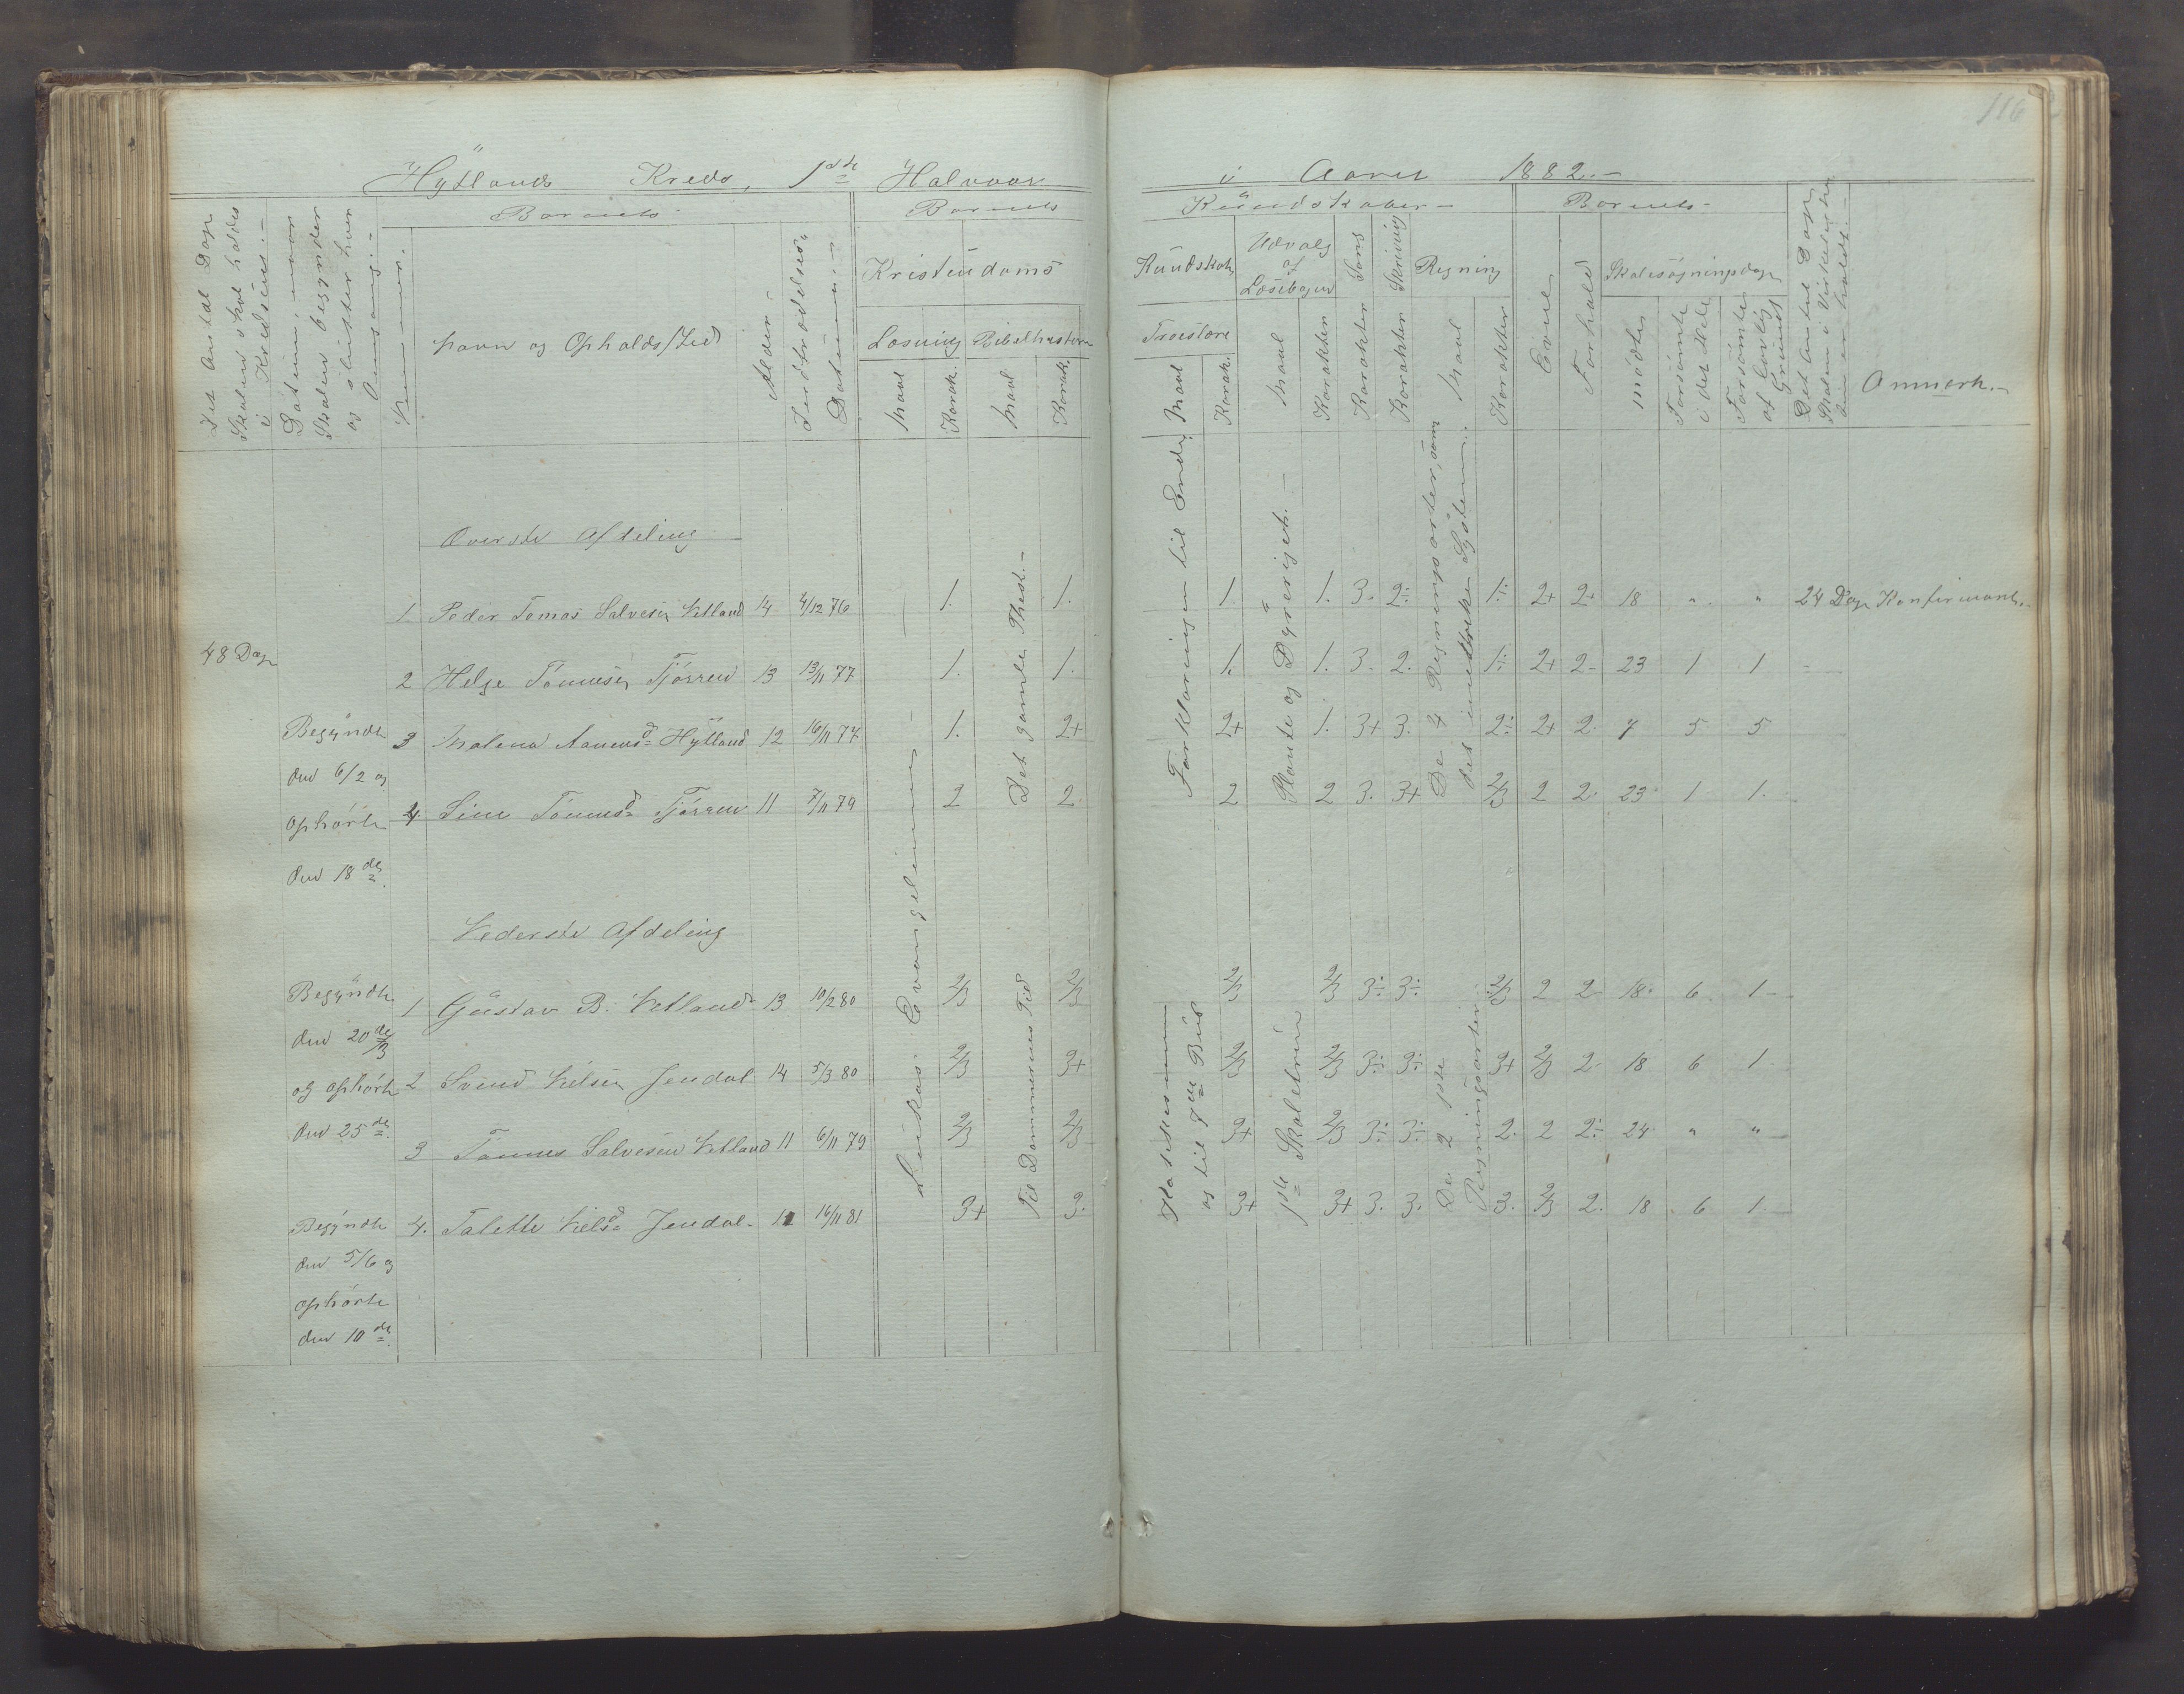 116
Hÿtlands Kreds, 1ste Halvaar
i Aaret 1882.-
Det Antal Dage
Skolen skal holdes
i Kredsen.-
Datum, naar
Skolen begynder
og slutter hver
Omgang.-
Nummer.
Barnets
Navn og Opholds/Sted
Alder.-
Indtrædelses-
Datum.-
Barnets
Kristendoms
Læsning
Bibelhistorie
Maal
Karak.
Maal
Karak.
Kundskaber-
Kundskab
Troeslære
Maal
Karak.
Udvalg
af
Læsebogen
Maal
Karakter
Sang
Karakter
Skrivning
Karakter
Regning
Maal
Karakter
Barnets-
Evne
Forhold
Skolesøgningsdage
mødte
Forsømte
i det Hele
Forsømte
af lovlig
Grund
Det Antal Dage
Skolen i Virkeligheden
er holdt.-
Anmerk.-
Øverste Afdeling
48 Dage
1 Peder Tomas Salvesen Vetland 14 4/12 76 1. 1. 1. 1. 3. 2÷ 1÷ 2+ 2+ 18 " " 24 Dage Konfirmant.
2 Helge Tønnesen Tjørren 13 13/11 77 1. 1. 1. 1. 3. 2. 1÷ 2+ 2- 23 1 1
3 Malena Aanensd Hÿtland 12 16/11 77 1. 2+ 2+ 1. 3+ 3. 2÷ 2+ 2. 7 5 5
4. Sine Tønnesd Tjørren 11 7/11 79 2 2 2 2 3. 3+ 2/3 2 2. 23 1 1.
Begÿndte
den 6/2 og
ophørte
den 18de
Det gamle Test.-
Forklaringen til Ende
Plante og Dÿreriget.-
De 4 Regningsarter, som
det metriske System.
Nederste Afdeling
Begÿndte
den 20de/3
og ophørte
den 25de
1 Gustav B. Vetland 13 10/2 80 2/3 2/3 2/3 2/3 3÷ 3÷ 2/3 2 2- 18. 6 1-
2 Svend Nielsen Jendal 14 5/3 80 2/3 3+ 2/3 2/3 3÷ 3÷ 3+ 2/3 2- 18 6 1
3 Tønnes Salvesen Vetland 11 6/11 79 2/3 2/3 3+ 2/3 3÷ 3÷ 2. 2 2÷ 24 " "
4. Talette Nielsd Jendal 11 16/11 81 3+ 3. 3+ 3+ 3. 3. 3. 2/3 2. 18 6 1.
Begÿndte
den 5/6 og
ophørte
den 10de
Lukas Evangelium
Til Dommernes Tid
og til 7de Bud
1ste Skoletrin
De 2 1ste
Regningsarter